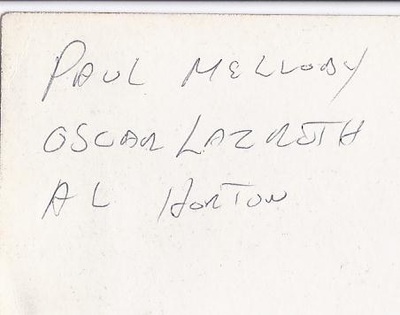 PAUL MELLODY
OSCAR LAZRUTH
AL HORTON